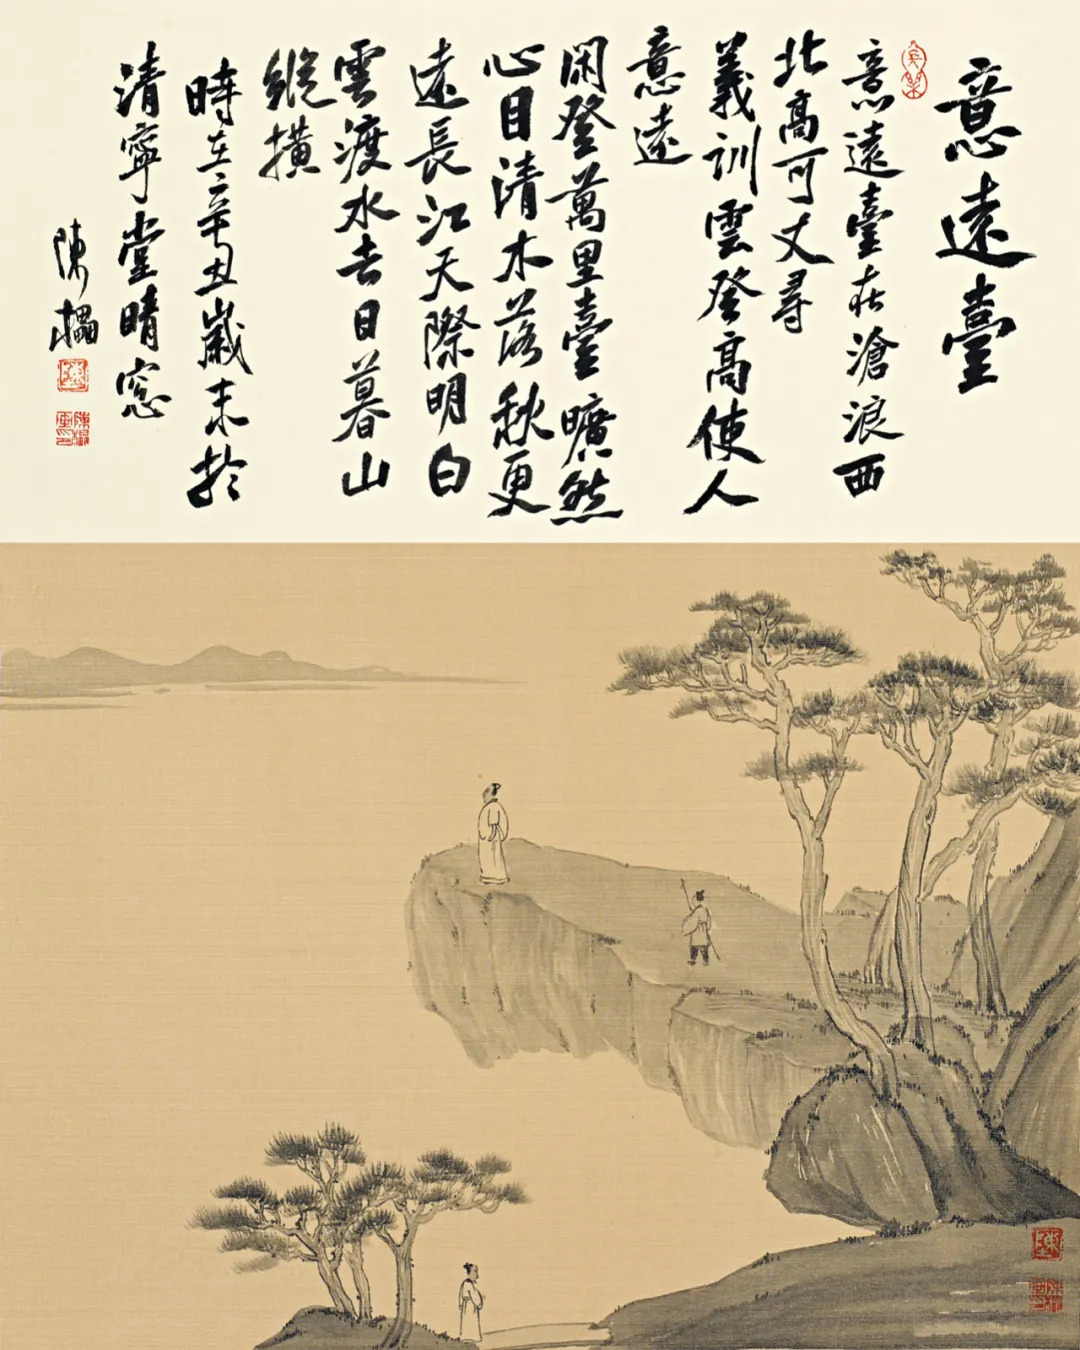 意遠臺
意遠臺在滄浪西
北高可丈尋
義訓雲登高使人
意遠
閑登萬里臺曠然
心目清木落秋更
遠長江天際明白
雲渡水去日暮山
縱橫
時在辛丑歲末於
清寧堂晴窓
陳